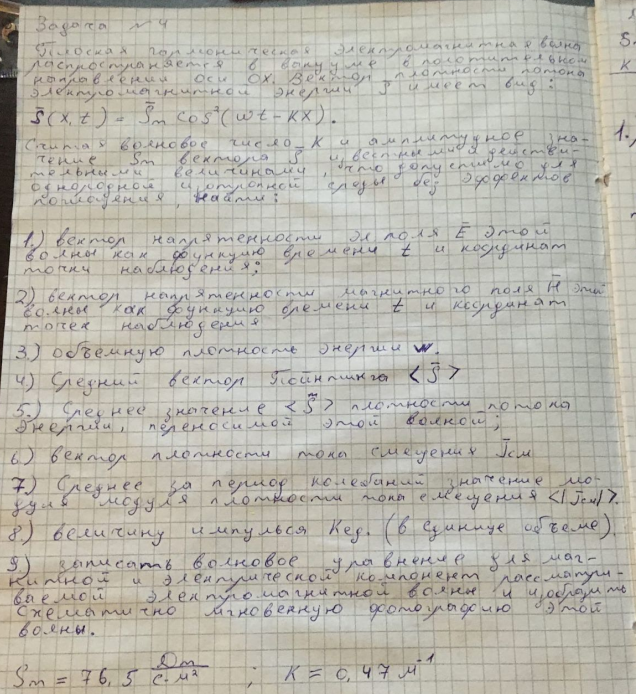 Задача № 4
Плоская гармоническая электромагнитная волна
распространяется в вакууме в положительном
направлении оси OX. Вектор плотности потока
электромагнитной энергии S̄ имеет вид:
S̄(x,t) = S̄m cos²(ωt - kx).
Считая волновое число K и амплитудное зна-
чение Sm вектора S̄ известными действи-
тельными величинами, что допустимо для
однородной изотропной среды без эффектов
поглощения, найти:
1.) вектор напряженности эл. поля Ē этой
волны как функцию времени t и координат
точки наблюдения;
2) вектор напряженности магнитного поля H̄ этой
волны как функцию времени t и координат
точек наблюдения
3.) объемную плотность энергии w.
4) Средний вектор Пойнтинга <S̄>
5.) Среднее значение <S̄> плотности потока
энергии, переносимой этой волной;
6) вектор плотности тока смещения j̄см
7) Среднее за период колебаний значение мо-
дуля модуля плотности тока смещения <|j̄см|>.
8) величину импульса Kед. (в единице объеме)
9) записать волновое уравнение для маг-
нитной и электрической компонент рассматри-
ваемой электромагнитной волны и изобразить
схематично мгновенную фотографию этой
волны.
Sm = 76,5 Дж/с·м² ; K = 0,47 м⁻¹
S.
K
1.,